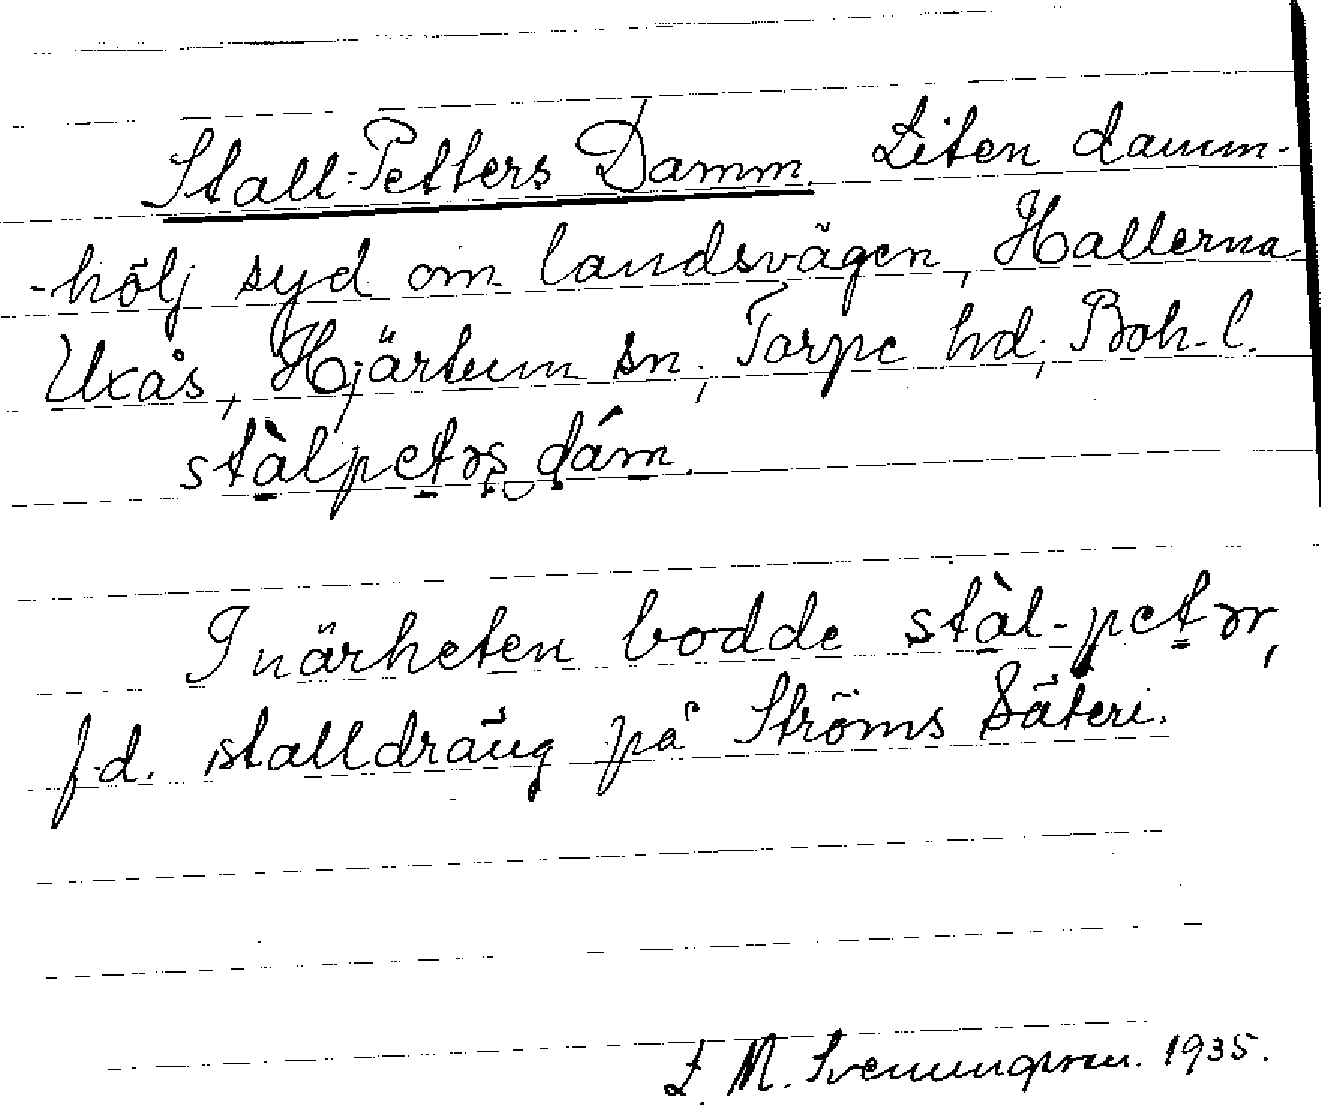 Stall-Petters Damm. Liten damm-
-hölj syd om landsvägen, Hallerna-
Uxås, Hjärtum sn., Torpe hd, Boh. l.
stàlpetərs dám.
I närheten bodde stàl-petər,
f.d. stalldräng på Ströms Säteri.
L. M. Svenungsson. 1935.